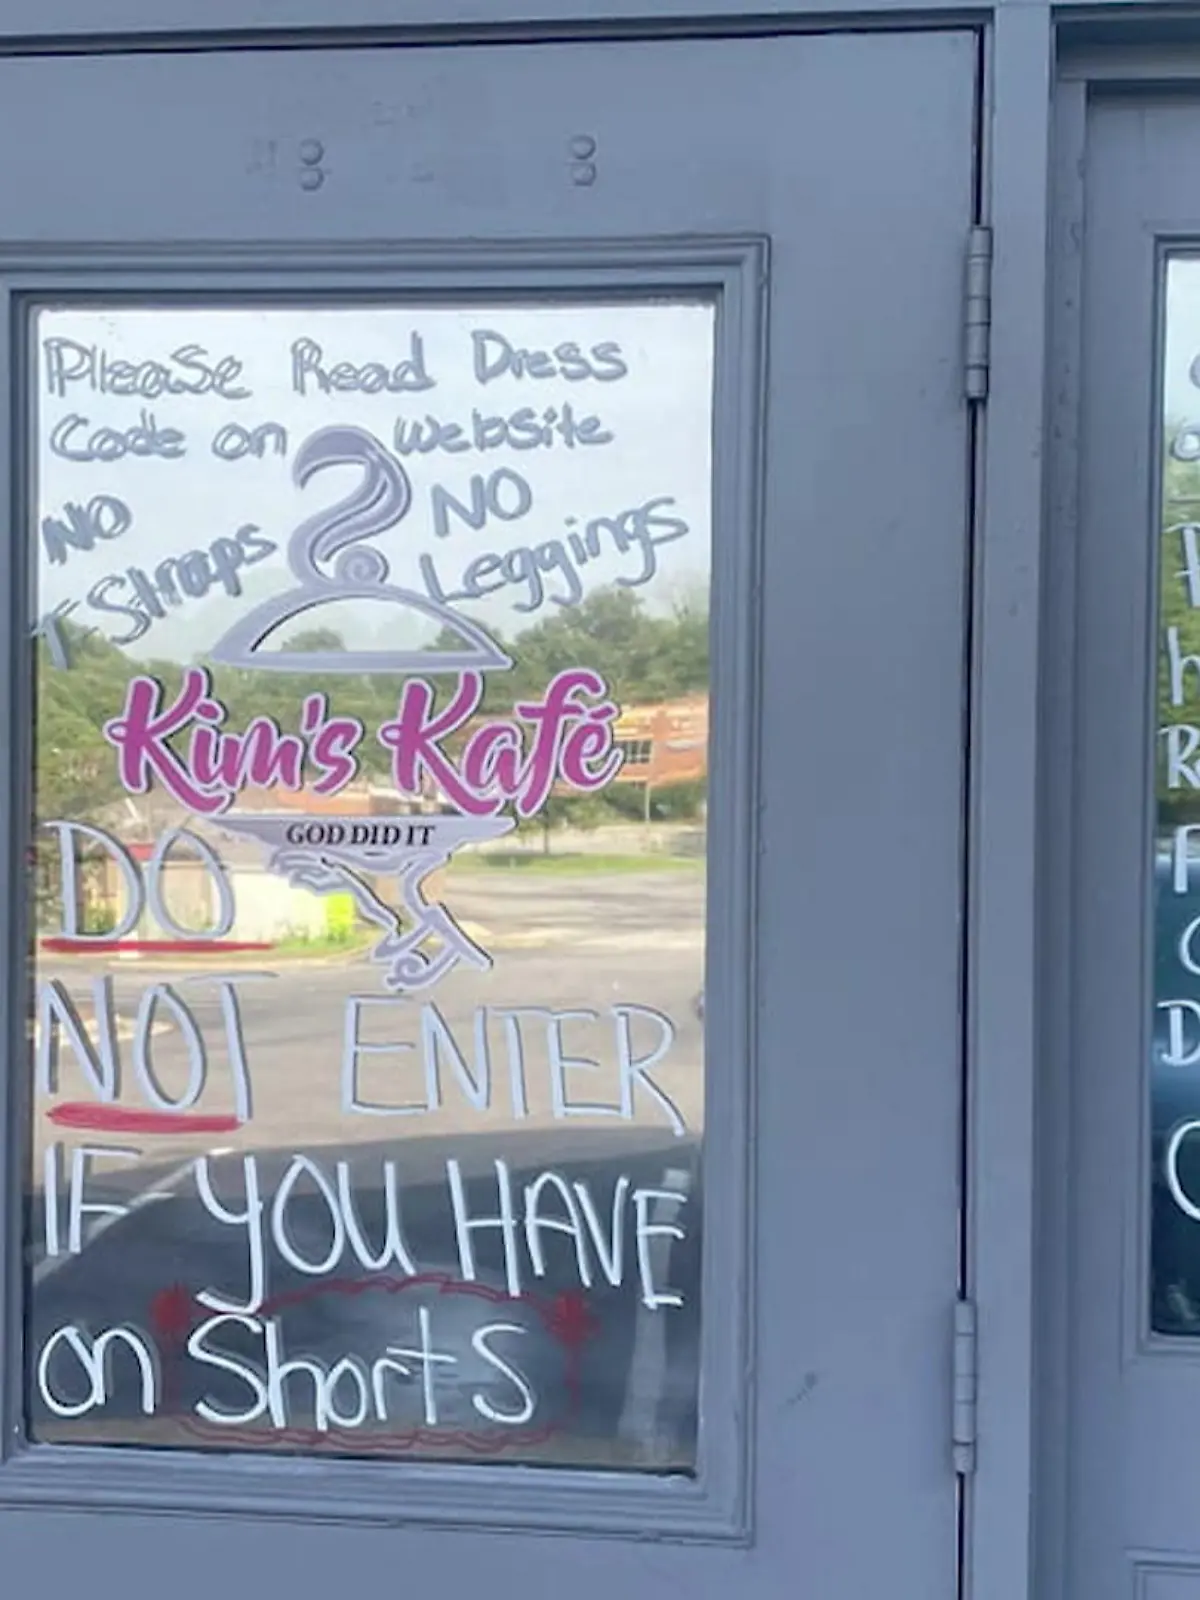 Please Read Dress
Code on Website
NO
T Straps
NO
Leggings
Kim's Kafé
GOD DID IT
DO
NOT ENTER
IF YOU HAVE
on Shorts